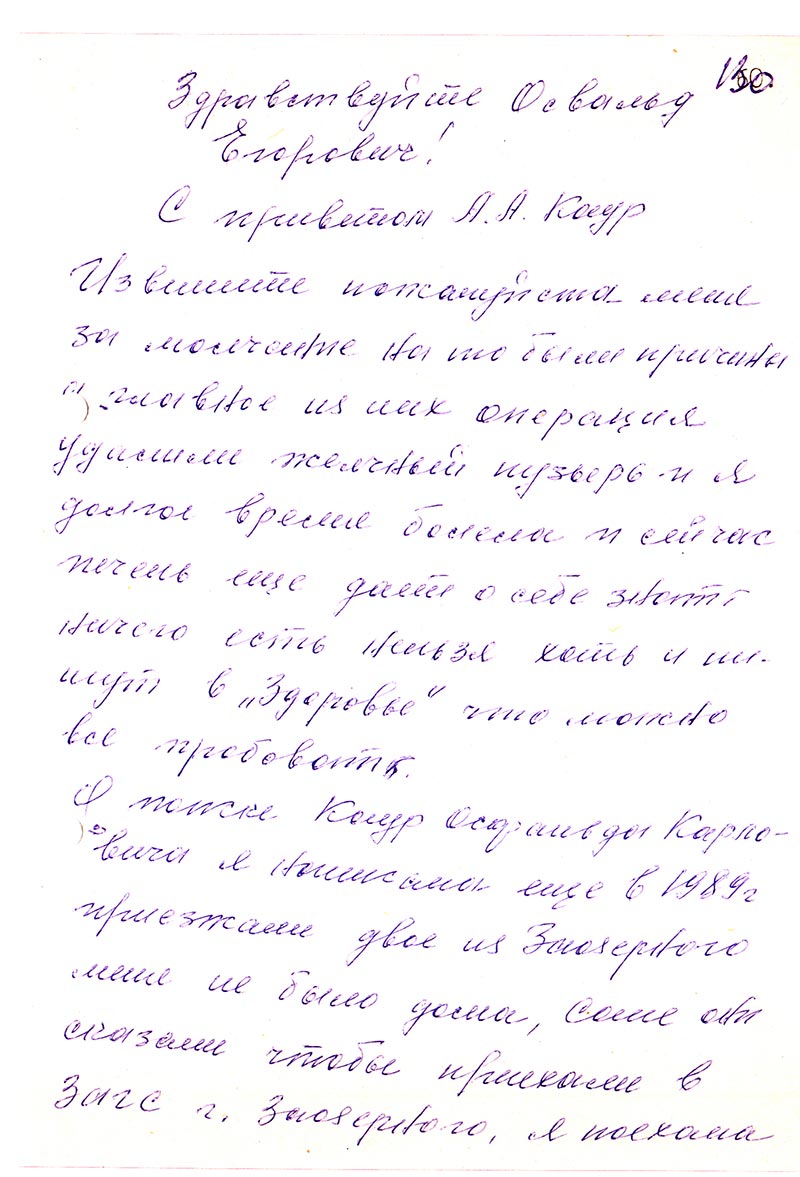 Здравствуйте Освальд
Егорович!
С приветом А.А. Каур
Извините пожалуйста меня
за молчание на то были причины
главное из них операция
удалили желчный пузырь и я
долгое время болела и сейчас
печень еще дает о себе знать
ничего есть нельзя хоть и пи-
шут в „Здоровье" что можно
все пробовать.
О поиске Каур Освальда Карло-
вича я написала еще в 1989г
приезжали двое из Заозерного
меня не было дома, Соне они
сказали чтобы приехали в
Загс г. Заозерного, я поехала